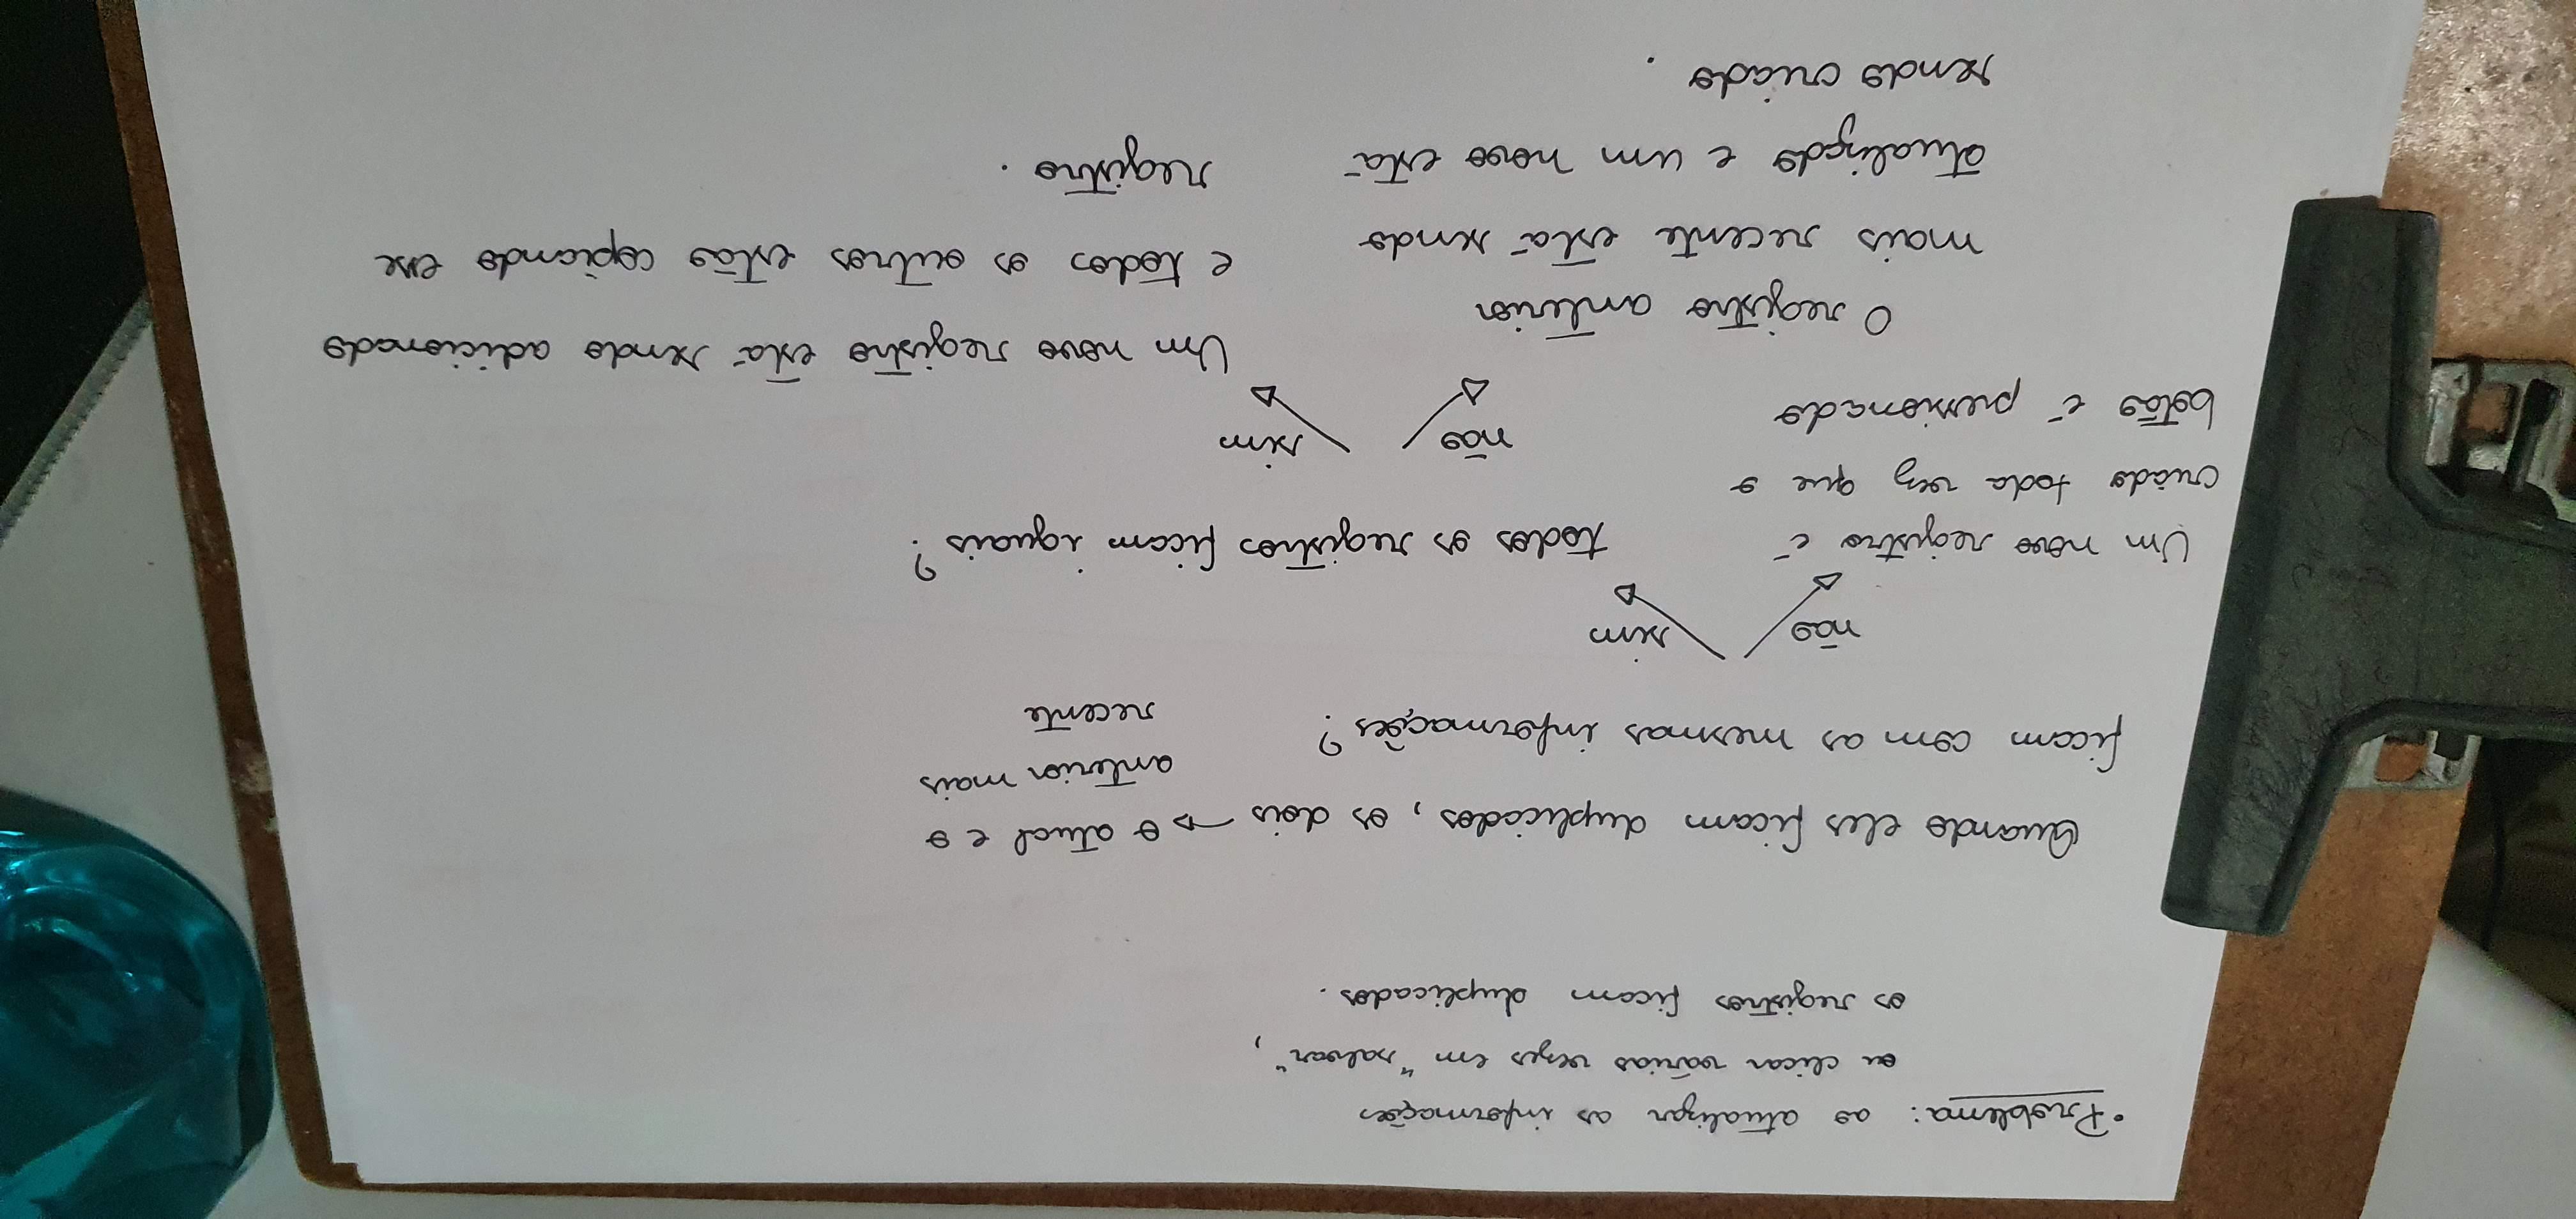 • Problema: ao atualizar as informações
ou clicar várias vezes em "salvar",
os registros ficam duplicados.
Quando eles ficam duplicados, os dois → o atual e o
anterior mais
recente
ficam com as mesmas informações?
não sim
Um novo registro é
criado toda vez que o
botão é pressionado
todos os registros ficam iguais?
não sim
O registro anterior
mais recente está sendo
atualizado e um novo está
sendo criado.
Um novo registro está sendo adicionado
e todos os outros estão copiando esse
registro.